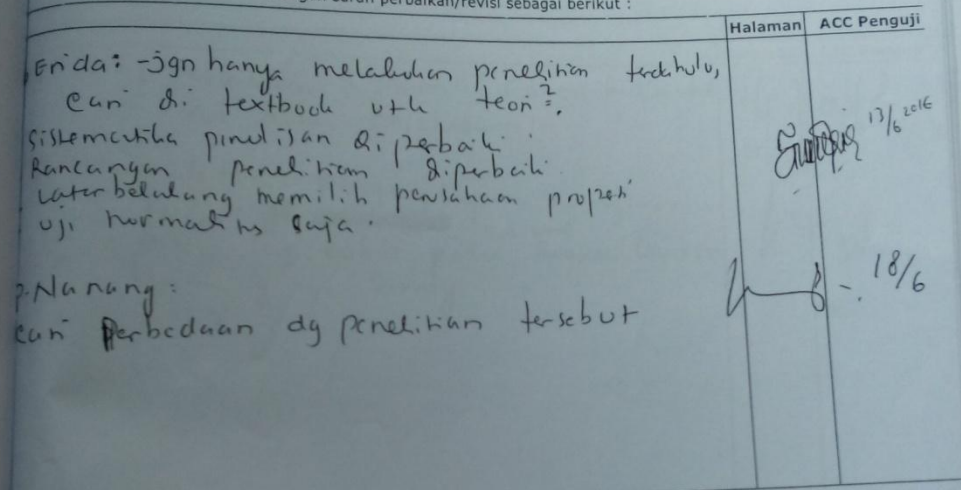 perbaikan/revisi sebagai berikut :
Halaman ACC Penguji
Erida: -jgn hanya melakukan penelitian terdahulu,
cari di textbook utk teori².
sistematika penulisan diperbaiki
Rancangan penelitian diperbaiki
Latar belakang memilih perusahaan properti
uji normalitas saja.
13/6 2016
P.Nanang:
cari perbedaan dg penelitian tersebut
18/6